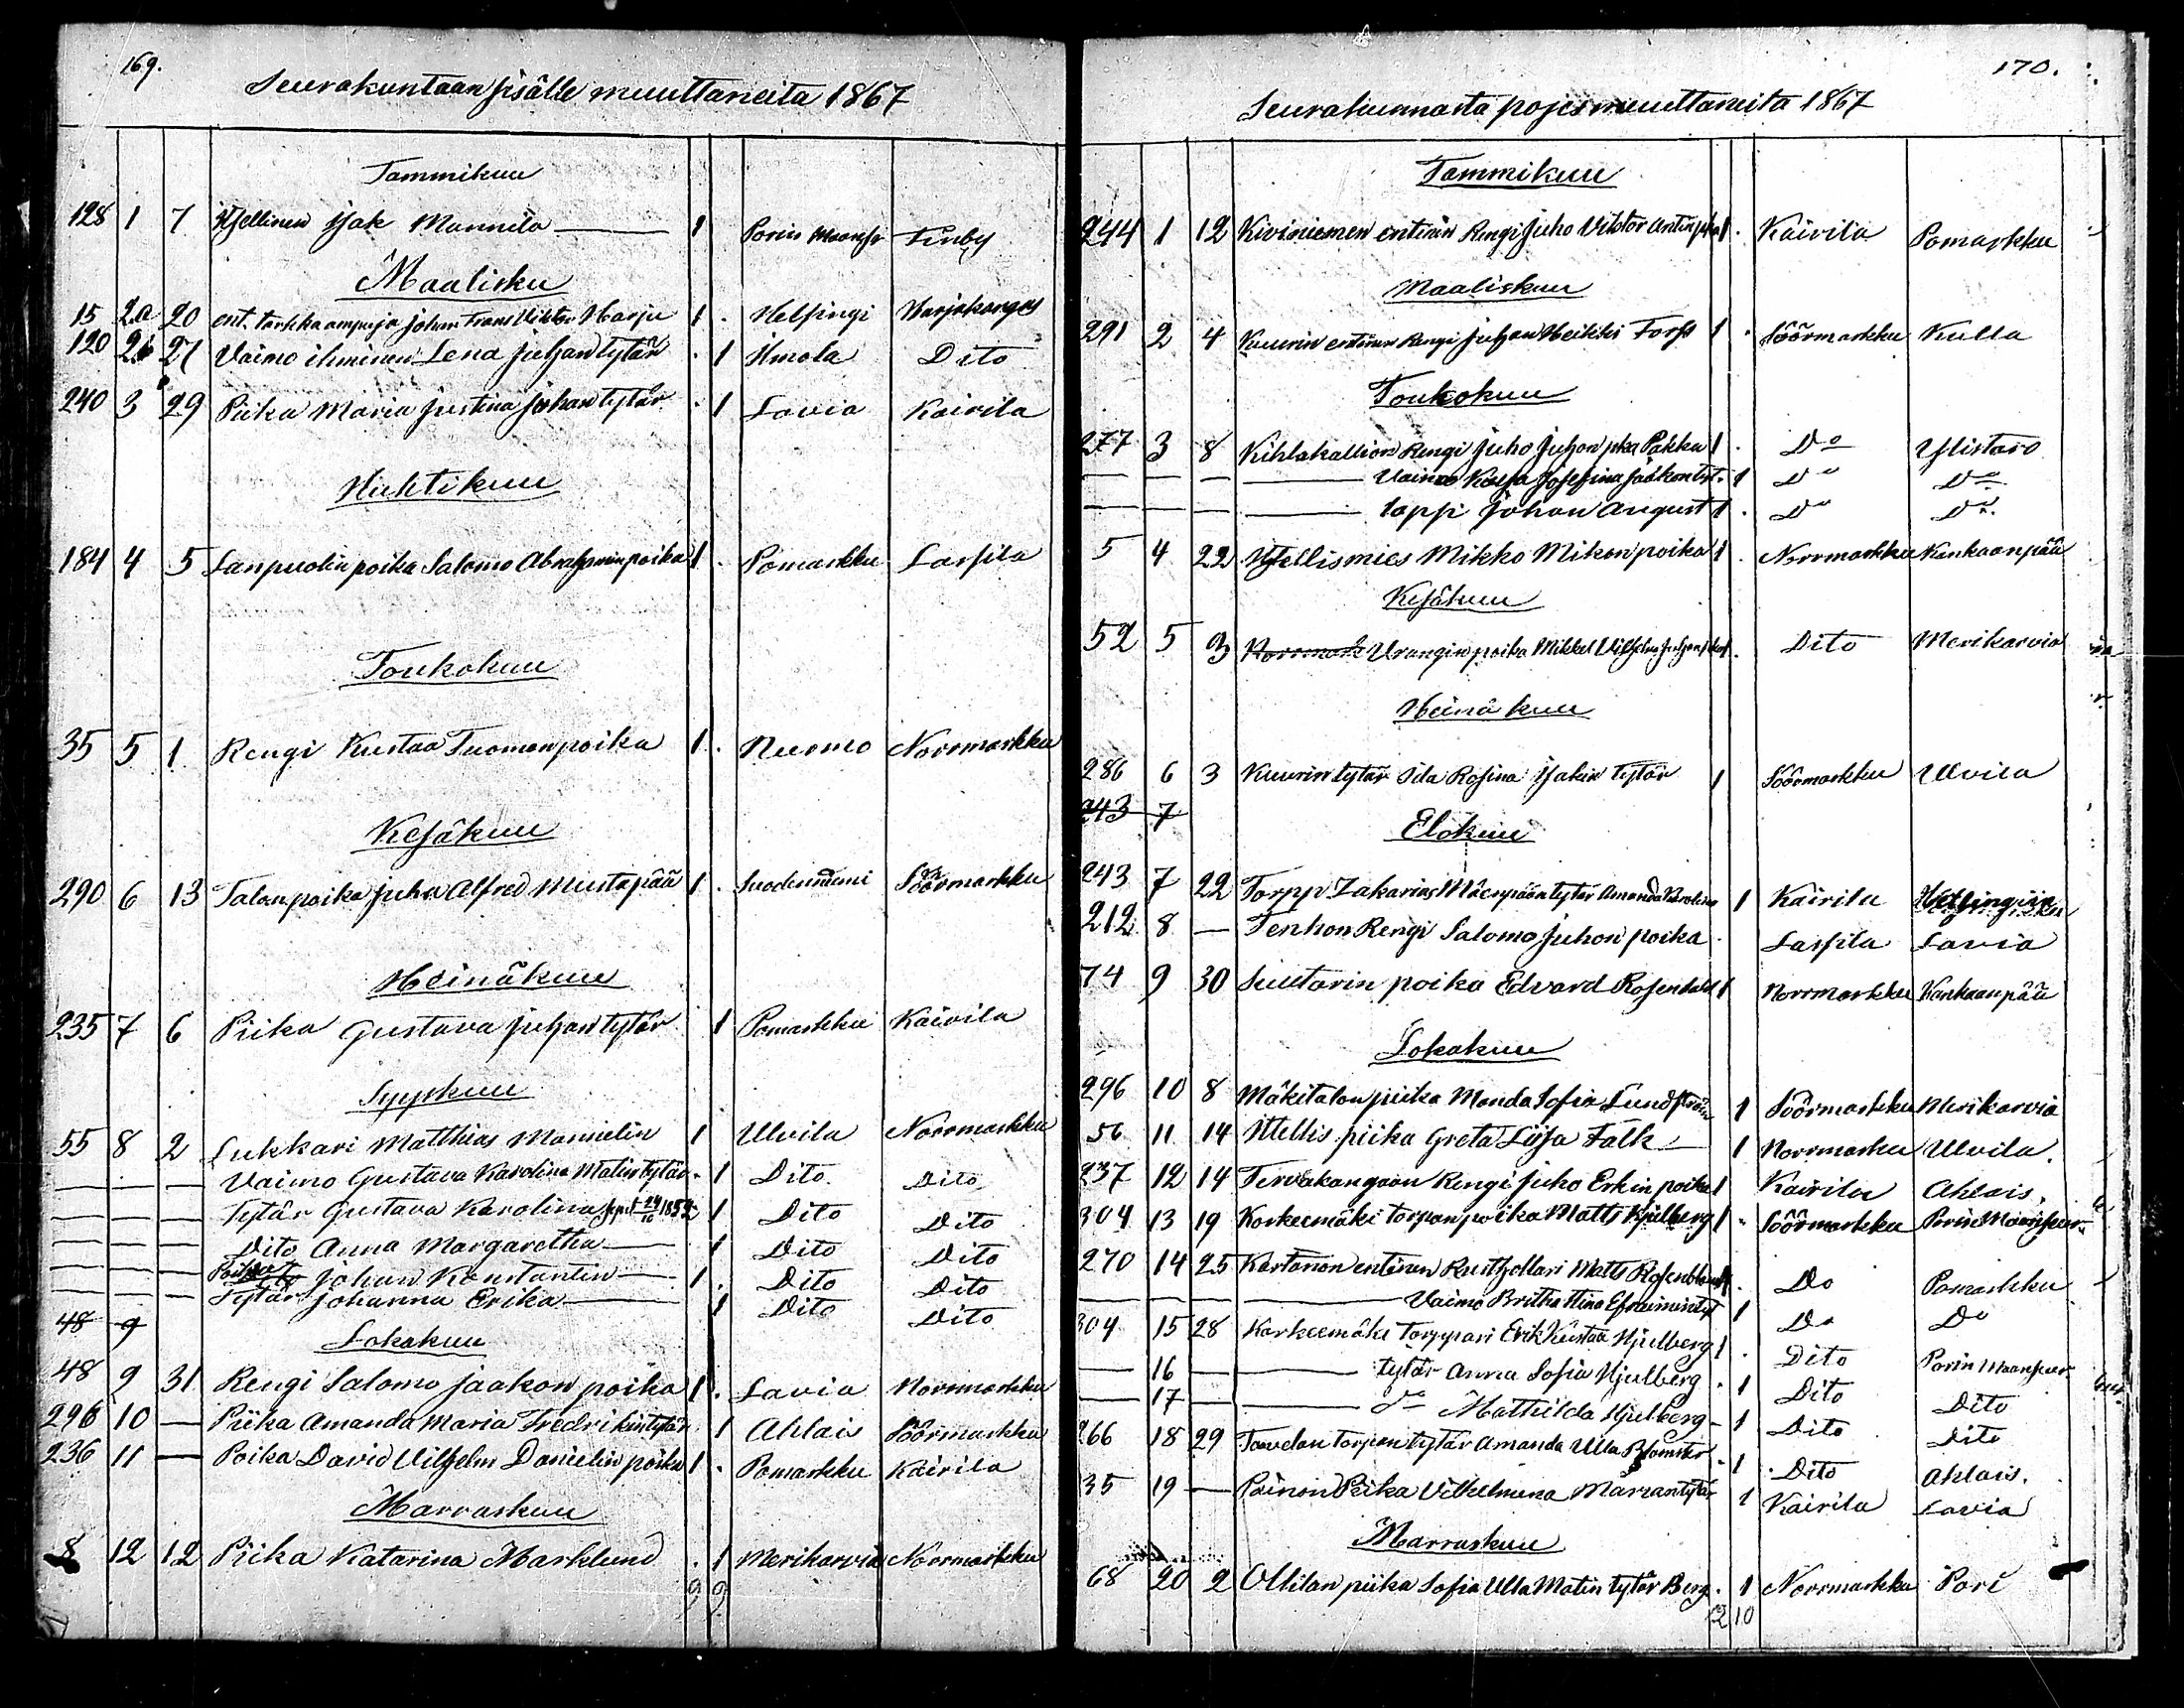 169.
Seurakuntaan sisälle muuttaneita 1867
Tammikuu
128 1 7 Itsellinen Isak Mannila 1 Porin Maaseu Finby
Maalisku
15 2a 20 ent. tarkka ampuja Johan Frans Viktor Harju 1 . Helsingi Harjakangas
120 2b 27 Vaimo ihminen Lena Juhjantytär . 1 Dito
240 3 29 Piika Maria Justina Johantytär . 1 Lavia Kairila
Huhtikuu
184 4 5 Lanpuolin poika Salomo Abrahamin poika 1 . Pomarkku Lassila
Toukokuu
35 5 1 Rengi Kustaa Tuomanpoika 1 . Norrmarkku
Kesäkuu
290 6 13 Talonpoika Juha Alfred Mustapää 1 . Suodenniemi Söörmarkku
Heinäkuu
235 7 6 Piika Gustava Juhjantytär 1 Pomarkku Kairila
Syyskuu
55 8 2 Lukkari Matthias Mannelin 1 Ulvila Norrmarkku
— — — Vaimo Gustava Karolina Matintytär . 1 Dito Dito
— — — Tytär Gustava Karolina 1 Dito Dito
— — — Dito Anna Margaretha — 1 Dito Dito
— — — Poika Johan Konstantin — 1 . Dito Dito
— — — Tytär Johanna Erika — 1 Dito Dito
48 9
Lokakuu
48 9 31 Rengi Salomo Jaakon poika 1 . Lavia Norrmarkku
296 10 — Piika Amanda Maria Fredrikintytär . 1 Ahlais Söörmarkku
236 11 — Poika David Vilhelm Danielin poika 1 . Pomarkku Kairila
Marraskuu
8 12 12 Piika Katarina Marklund . 1 Merikarvia Norrmarkku
9 9
170.
Seurakunnasta pojes muuttaneita 1867
Tammikuu
244 1 12 Kiviniemen entinen Rengi Juho Viktor Antinpka 1 . Kairila Pomarkku
Maaliskuu
291 2 4 Kuurin entinen Rengi Juhan Heikki Forss 1 . Söörmarkku Kulla
Toukokuu
277 3 8 Kihlakallion Rengi Juho Juhon pka Pakka 1 . Do Ylistaro
— — — — Vaimo Kaisa Josefina Jaakontyt . 1 Do Do
— — — — lapsi Johan August 1 . Do Do.
5 4 22 Itsellismies Mikko Mikonpoika 1 . Norrmarkku Kankaanpää
Kesäkuu
52 5 3 Norrmark Urangin poika Mikkel Vilhelm 1 . Dito Merikarvia
Heinäkuu
286 6 3 Kuurin tytär Ida Rosina Isakin tytär 1 Söörmarkku Ulvila
243 7
Elokuu
243 7 22 Torpp Zakarias Mäenpään tytär Amanda Karolina 1 Kairila Helsingiin
212 8 — Tenhon Rengi Salomo Juhon poika . Lassila Lavia
74 9 30 Suutarin poika Edvard Rosendahl 1 Norrmarkku Kankaanpää
Lokakuu
296 10 8 Mäkitalon piika Manda Sofia Lundström 1 Söörmarkku Merikarvia
56 11 14 Itsellis piika Greta Liisa Falk — 1 Norrmarkku Ulvila.
237 12 14 Tervakangaan Rengi Juho Erkin poika 1 Kairila Ahlais.
304 13 19 Korkeemäki torpan poika Matts Hjulberg 1 . Söörmarkku Porin Maaseur.
270 14 25 Kartanon entinen Rusthollari Matts Rosenblad 1 . Do Pomarkku
— — — Vaimo Britha Stina Efraimintyt 1 Do Do
304 15 28 Korkeemäki torppari Erik Kustaa Hjulberg 1 . Dito Porin Maaseur
— 16 — tytär Anna Sofia Hjulberg . 1 Dito Dito
— 17 — do Mathilda Hjulberg — 1 Dito Dito
266 18 29 torpan tytär Amanda Ulla Blomster . 1 Dito Ahlais.
35 19 — Piika Vilhelmina 1 Kairila Lavia
Marraskuu
68 20 2 Ollilan piika Sofia Ulla Matin tytär Berg . 1 Norrmarkku Pori
12 10